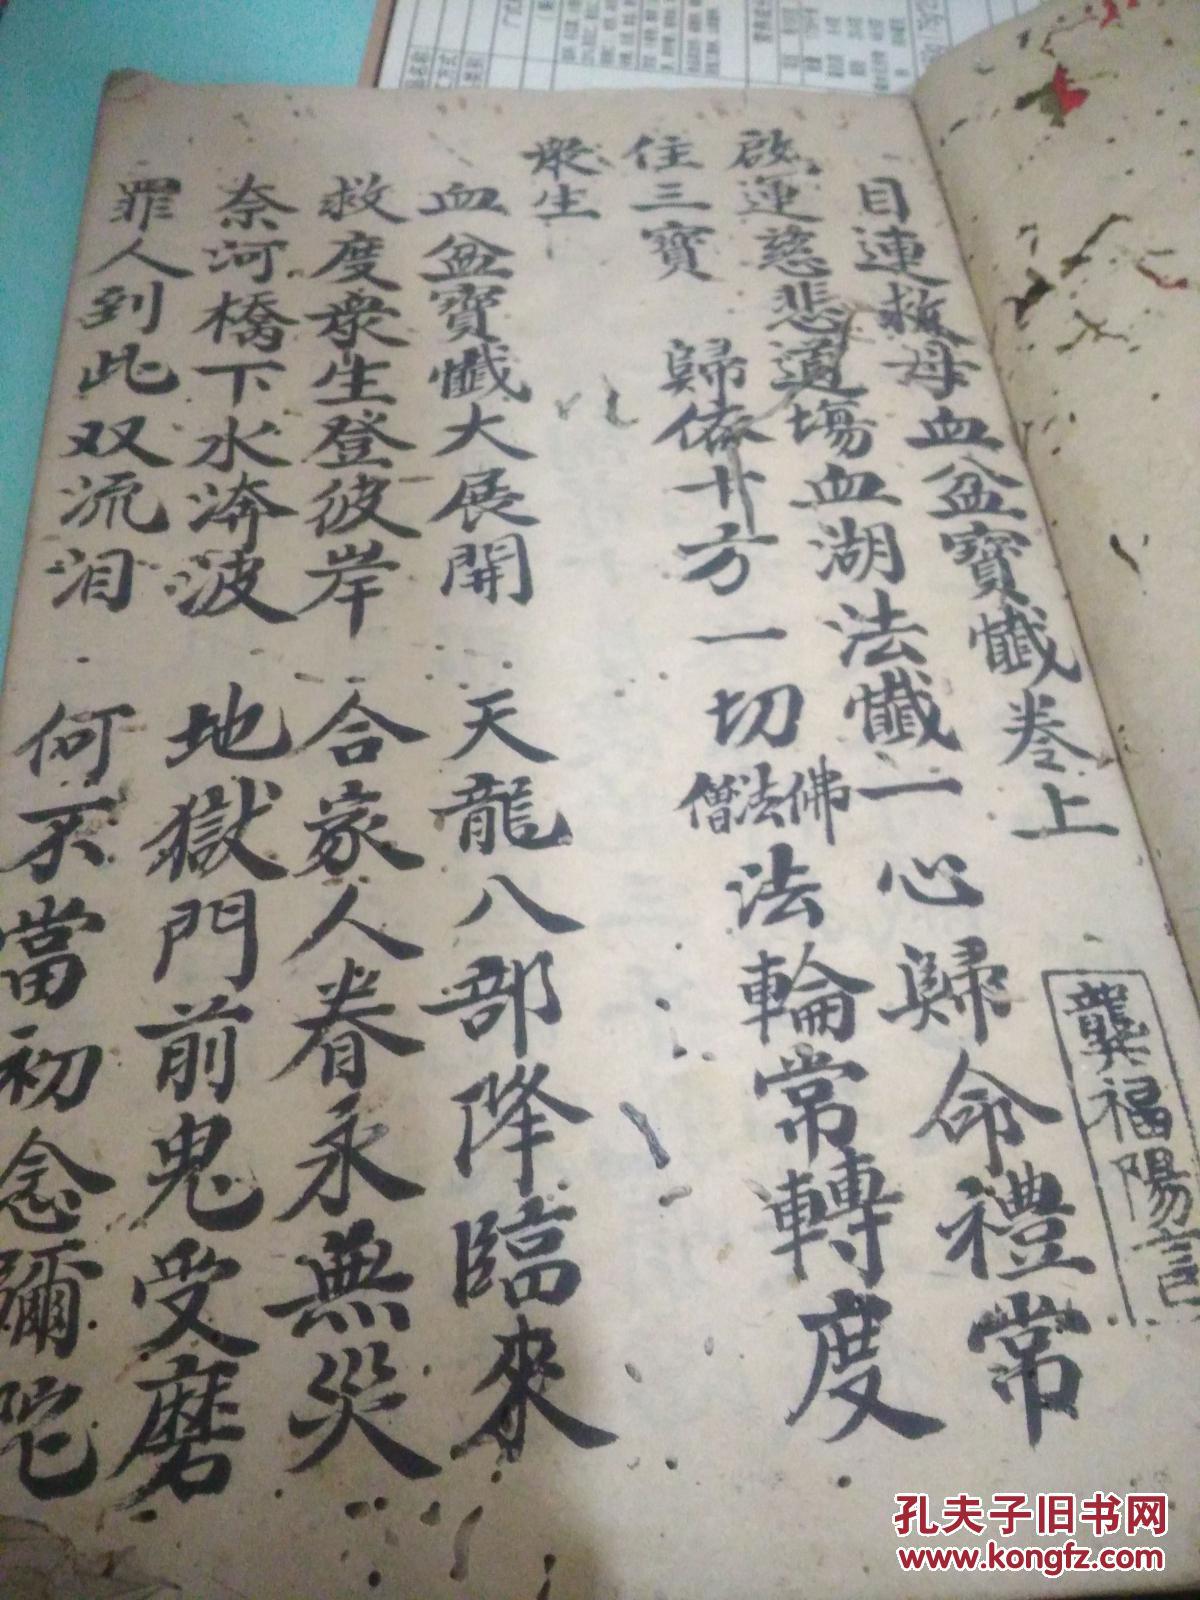 目連救母血盆寶懺卷上
龔福陽言
啟運慈悲道場血湖法懺一心歸命禮常
住三寶 歸依十方一切佛法僧法輪常轉度
眾生
血盆寶懺大展開 天龍八部降臨來
救度衆生登彼岸 合家人眷永無災
奈河橋下水渀波 地獄門前鬼受磨
罪人到此双流泪 何不當初念彌陀
孔夫子旧书网
www.kongfz.com